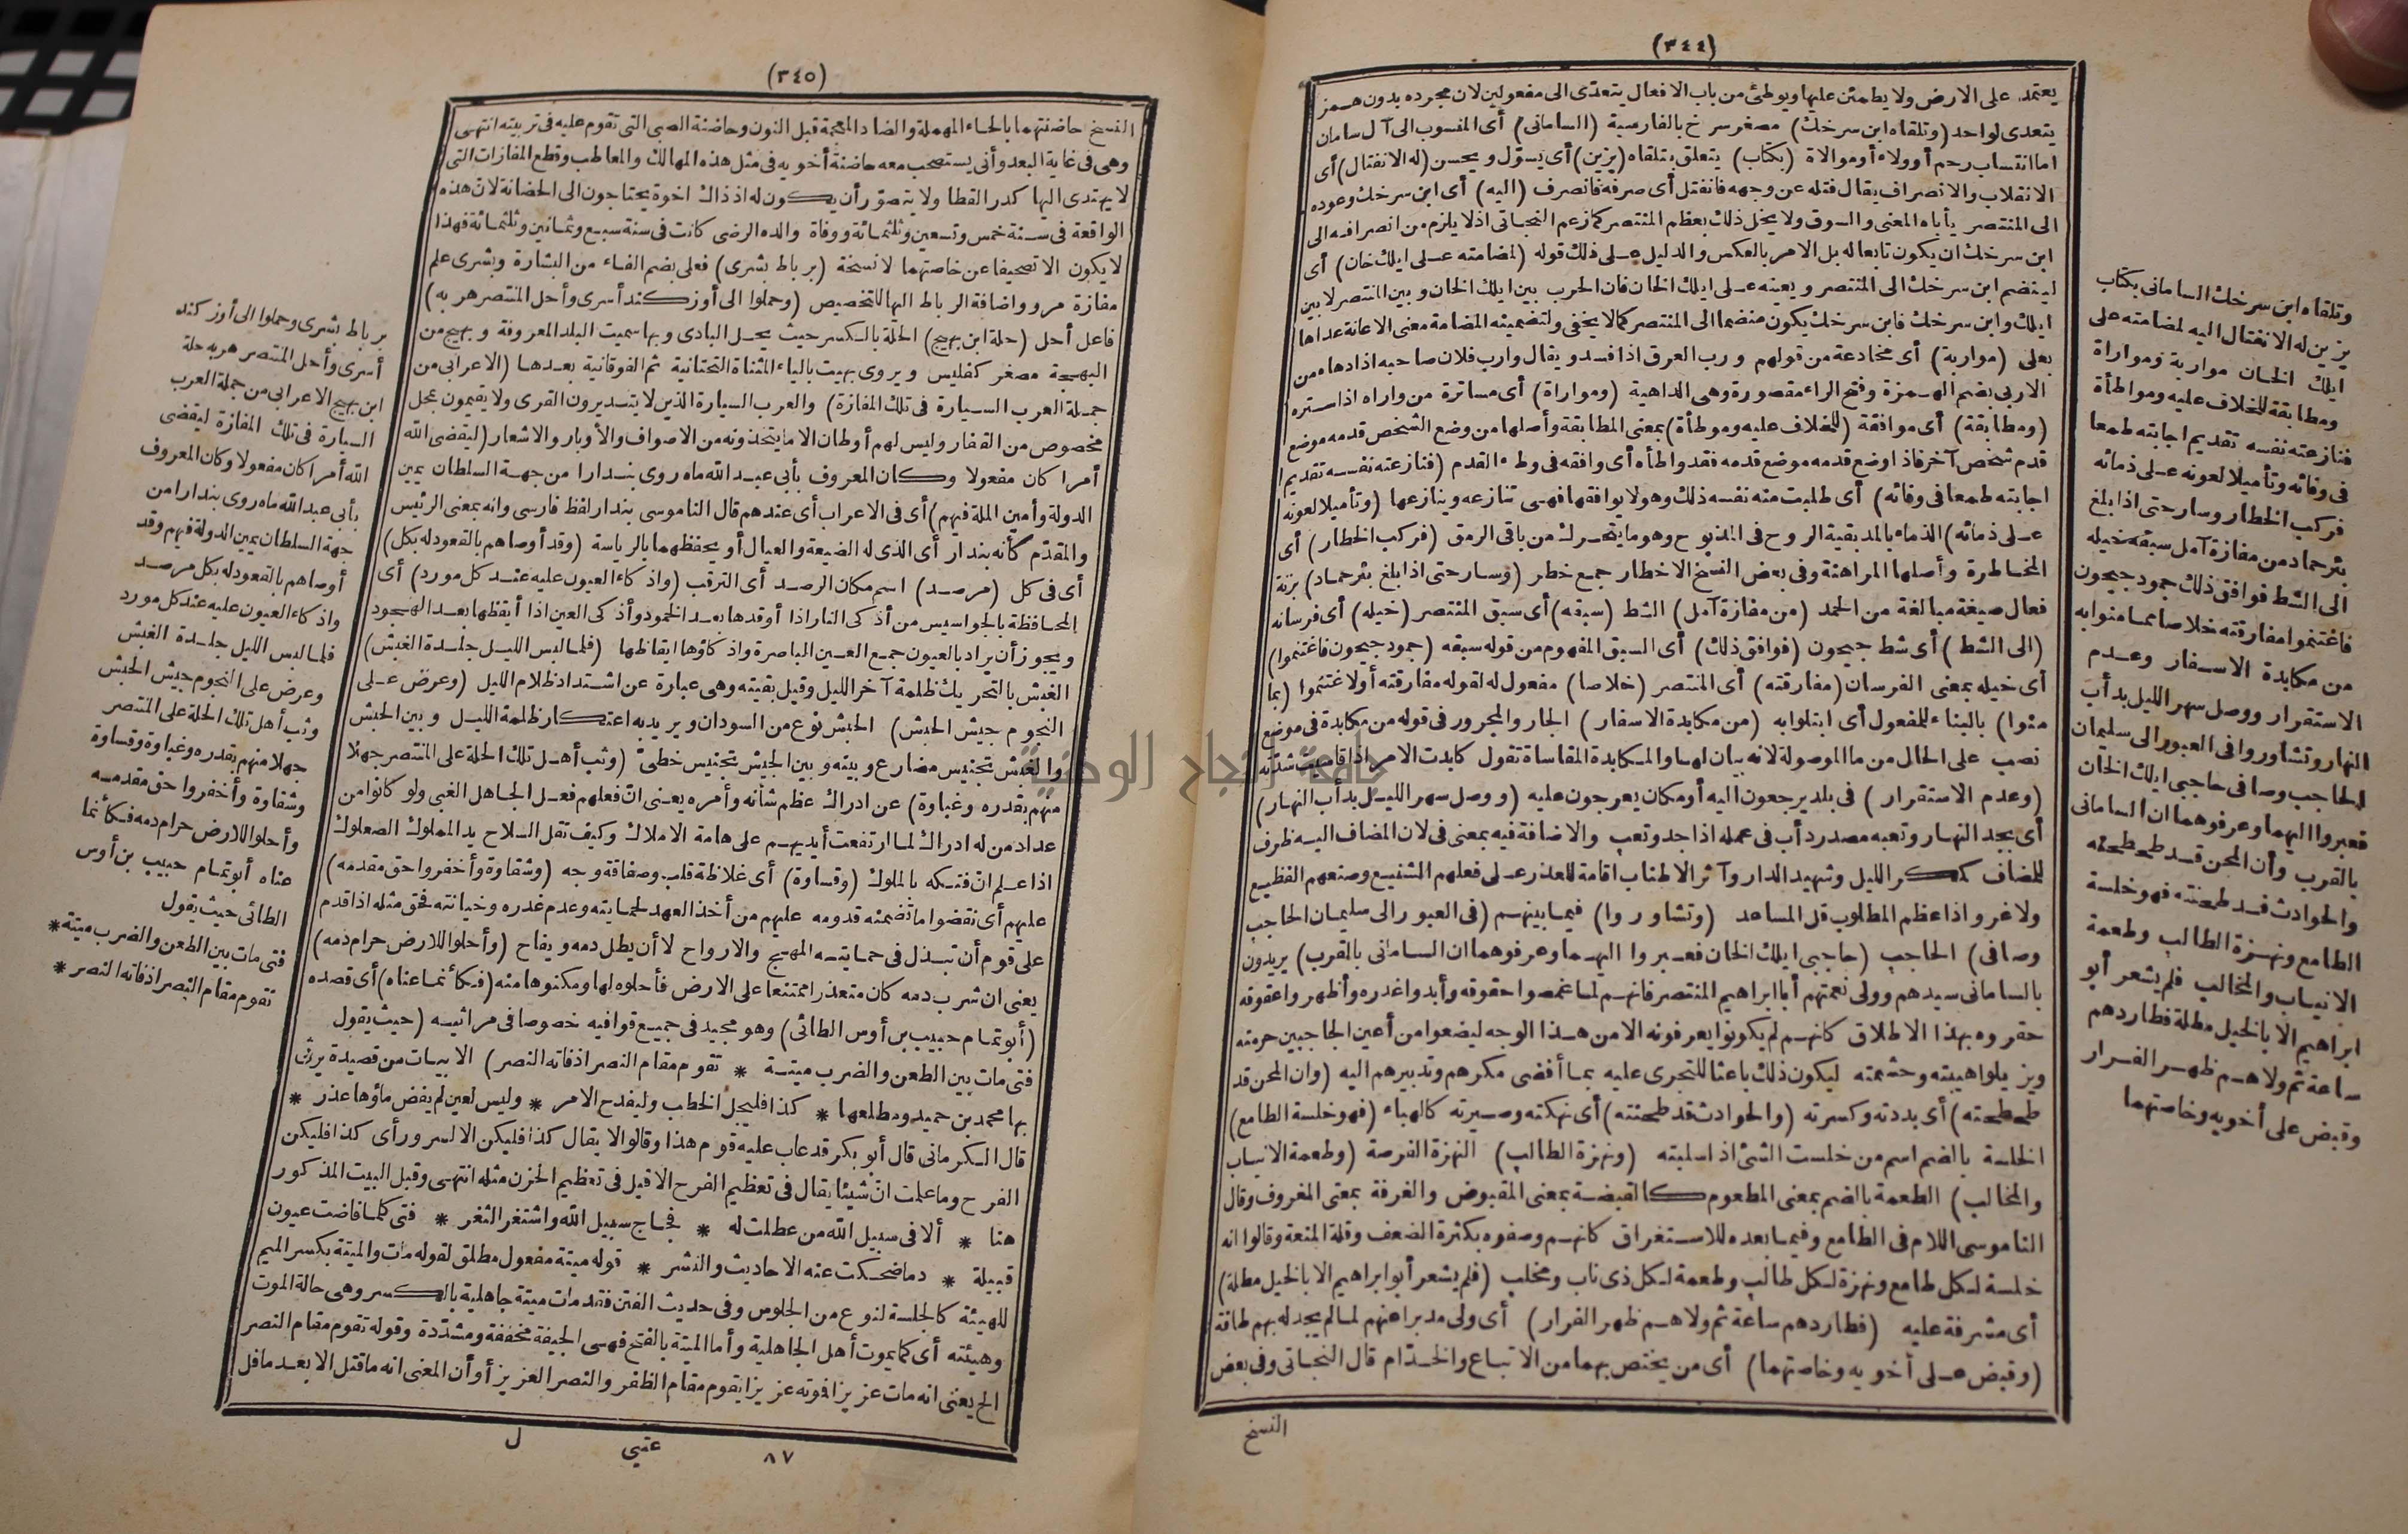 (٣٤٤)
يعتمد على الارض ولا يطمئن عليها ويوطئ من باب الافعال يتعدى الى مفعولين لان مجرده بدون همز
يتعدى لواحد (وتلقاه ابن سرخك) مصغر سرخ بالفارسية (الساماني) أى المنسوب الى آل سامان
اما انتساب رحم أو ولاء أو موالاة (بكتاب) يتعلق بتلقاه (يزين) أى يسوّل ويحسن (له الانفتال) أى
الانقلاب والانصراف يقال فتله عن وجهه فانفتل أى صرفه فانصرف (اليه) أى ابن سرخك وعوده
الى المنتصر يأباه المعنى والسوق ولا يخل ذلك بعظم المنتصر كما زعم النجاتى اذ لا يلزم من انصرافه الى
ابن سرخك ان يكون تابعا له بل الامر بالعكس والدليل على ذلك قوله (لمضامته على ايلك خان) أى
لينضم ابن سرخك الى المنتصر ويعينه على ايلك الخان فان الحرب بين ايلك الخان وبين المنتصر لا بين
ايلك وابن سرخك فابن سرخك يكون منضما الى المنتصر كما لا يخفى ولتضمينه المضامة معنى الاعانة عداها
بعلى (مواربة) أى مخادعة من قولهم ورب العرق اذا فسد ويقال وارب فلان صاحبه اذا دهاه من
الاربى بضم الهمزة وفتح الراء مقصورة وهى الداهية (ومواراة) أى مساترة من واراه اذا ستره
(ومطابقة) أى موافقة (للخلاف عليه وموطأة) بمعنى المطابقة وأصلها من وضع الشخص قدمه موضع
قدم شخص آخر فاذا وضع قدمه موضع قدمه فقد واطأه أى وافقه فى وطء القدم (فنازعته نفسه تقديم
اجابته طمعا فى وفائه) أى طلبت منه نفسه ذلك وهو لا يوافقها فهى تنازعه وينازعها (وتأميلا لعونه
على ذمائه) الذماء بالمد بقية الروح فى المذبوح وهو ما يتحرك من باقى الرمق (فركب الخطار) أى
المخاطرة وأصلها المراهنة وفى بعض النسخ الاخطار جمع خطر (وسار حتى اذا بلغ بئر حماد) بزنة
فعال صيغة مبالغة من الحمد (من مفازة آمل) الشط (سبقه) أى سبق المنتصر (خيله) أى فرسانه
(الى الشط) أى شط جيحون (فوافق ذلك) أى السبق المفهوم من قوله سبقه (جمود جيحون فاغتنموا)
أى خيله بمعنى الفرسان (مفارقته) أى المنتصر (خلاصا) مفعول له لقوله مفارقته أولا غتنموا (بما
منوا) بالبناء للمفعول أى ابتلوا به (من مكابدة الاسفار) الجار والمجرور فى قوله من مكابدة فى موضع
نصب على الحال من ما الموصولة لانه بيان لها والمكابدة المقاساة تقول كابدت الامر اذا قاسيت شدته
(وعدم الاستقرار) فى بلد يرجعون اليه أو مكان يعرجون عليه (ووصل سهر الليل بدأب النهار)
أى بجد النهار وتعبه مصدر دأب فى عمله اذا جد وتعب والاضافة فيه بمعنى فى لان المضاف اليه ظرف
للمضاف كمكر الليل وشهيد الدار وآثر الاطناب اقامة للعذر على فعلهم الشنيع وصنعهم الفظيع
ولا غرو اذا عظم المطلوب قل المساعد (وتشاوروا) فيما بينهم (فى العبور الى سليمان الحاجب
وصافى) الحاجب (حاجبى ايلك الخان فعبروا اليهما وعرفوهما ان السامانى بالقرب) يريدون
بالسامانى سيدهم وولى نعمتهم أبا ابراهيم المنتصر فانهم لما غمصوا حقوقه وأبدوا غدره وأظهروا عقوقه
حقروه بهذا الاطلاق كانهم لم يكونوا يعرفونه الا من هذا الوجه ليضعوا من أعين الحاجبين حرمته
ويزيلوا هيبته وحشمته ليكون ذلك باعثا للتجرى عليه بما أفضى مكرهم وتدبيرهم اليه (وان المحن قد
طحطحته) أى بددته وكسرته (والحوادث قد طحنته) أى نهكته وصيرته كالهباء (فهو خلسة الطامع)
الخلسة بالضم اسم من خلست الشئ اذا سلبته (ونهزة الطالب) النهزة الفرصة (وطعمة الانياب
والمخالب) الطعمة بالضم بمعنى المطعوم كالقبضة بمعنى المقبوض والغرفة بمعنى المغروف وقال
الناموسى اللام فى الطامع وفيما بعده للاستغراق كانهم وصفوه بكثرة الضعف وقلة المنعة وقالوا انه
خلسة لكل طامع ونهزة لكل طالب وطعمة لكل ذى ناب ومخلب (فلم يشعر أبو ابراهيم الا بالخيل مطلة)
أى مشرفة عليه (فطاردهم ساعة ثم ولاهم ظهر الفرار) أى ولى مدبرا عنهم لما لم يجد له بهم طاقة
(وقبض على أخويه وخاصتهما) أى من يختص بهما من الاتباع والخدّام قال النجاتى وفى بعض
النسخ
وتلقاه ابن سرخك السامانى بكتاب
يزين له الانفتال اليه لمضامته على
ايلك الخان مواربة ومواراة
ومطابقة للخلاف عليه ومواطأة
فنازعته نفسه تقديم اجابته طمعا
فى وفائه وتأميلا لعونه على ذمائه
فركب الخطار وسار حتى اذا بلغ
بئر حماد من مفازة آمل سبقه خيله
الى الشط فوافق ذلك جمود جيحون
فاغتنموا مفارقته خلاصا مما منوا به
من مكابدة الاسفار وعدم
الاستقرار ووصل سهر الليل بدأب
النهار وتشاوروا فى العبور الى سليمان
الحاجب وصافى حاجبى ايلك الخان
فعبروا اليهما وعرفوهما ان السامانى
بالقرب وأن المحن قد طحطحته
والحوادث قد طحنته فهو خلسة
الطامع ونهزة الطالب وطعمة
الانياب والمخالب فلم يشعر أبو
ابراهيم الا بالخيل مطلة فطاردهم
ساعة ثم ولاهم ظهر الفرار
وقبض على أخويه وخاصتهما
(٣٤٥)
النسخ حاضنتهما بالحاء المهملة والضاد المعجمة قبل النون وحاضنة الصبى التى تقوم عليه فى تربيته انتهى
وهى فى غاية البعد وأنى يستصحب معه حاضنة أخويه فى مثل هذه المهالك والمعاطب وقطع المفازات التى
لا يهتدى اليها كدر القطا ولا يتصوّر أن يكون له اذ ذاك اخوة يحتاجون الى الحضانة لانّ هذه
الواقعة فى سنة خمس وتسعين وثلثمائة ووفاة والده الرضى كانت فى سنة سبع وثمانين وثلثمائة فهذا
لا يكون الا تصحيفا عن خاصتهما لا نسخة (برباط بشرى) فعلى بضم الفاء من البشارة وبشرى علم
مفازة مرو واضافة الرباط اليها للتخصيص (وحملوا الى أوزكند أسرى وأحل المنتصر هربه)
فاعل أحل (حلة ابن بهيج) الحلة بالكسر حيث يحل البادى وبها سميت البلد المعروفة وبهيج من
البهجة مصغر كفليس ويروى بهيت بالياء المثناة التحتانية ثم الفوقانية بعدها (الاعرابى من
جملة العرب السيارة فى تلك المفازة) والعرب السيارة الذين لا يتديرون القرى ولا يقيمون بمحل
مخصوص من القفار وليس لهم أوطان الا ما يتخذونه من الاصواف والأوبار والاشعار (ليقضى الله
أمرا كان مفعولا وكان المعروف بأبى عبد الله ماه روى بندارا من جهة السلطان يمين
الدولة وأمين الملة فيهم) أى فى الاعراب أى عندهم قال الناموسى بندار لفظ فارسى وانه بمعنى الرئيس
والمقدّم كأنه بندار أى الذى له الضيعة والعيال أو يحفظهما بالرياسة (وقد أوصاهم بالقعود له بكل)
أى فى كل (مرصد) اسم مكان الرصد أى الترقب (واذكاء العيون عليه عند كل مورد) أى
المحافظة بالجواسيس من أذكى النار اذا أوقدها بعد الخمود وأذكى العين اذا أيقظها بعد الهجود
ويجوز أن يراد بالعيون جمع العين الباصرة واذكاؤها ايقاظها (فلما لبس الليل جلدة الغبش)
الغبش بالتحريك ظلمة آخر الليل وقيل بقيته وهى عبارة عن اشتداد ظلام الليل (وعرض على
النجوم جيش الحبش) الحبش نوع من السودان ويريد به اعتكار ظلمة الليل وبين الحبش
والغبش تجنيس مضارع وبينه وبين الجيش تجنيس خطىّ (وثب أهل تلك الحلة على المنتصر جهلا
منهم بقدره وغباوة) عن ادراك عظم شأنه وأمره يعنى انّ فعلهم فعل الجاهل الغبى ولو كانوا من
عداد من له ادراك لما ارتفعت أيديهم على هامة الاملاك وكيف تقل السلاح يد المملوك الصعلوك
اذا علم انّ فتكه بالملوك (وقساوة) أى غلاظة قلب وصفاقة وجه (وشقاوة وأخفروا حق مقدمه)
عليهم أى نقضوا ما تضمنه قدومه عليهم من أخذ العهد لحمايته وعدم غدره وخيانته فحق مثله اذا قدم
على قوم أن تبذل فى حمايته المهج والارواح لا أن يطل دمه ويفاح (وأحلوا للارض حرام دمه)
يعنى ان شرب دمه كان متعذرا ممتنعا على الارض فأحلوه لها ومكنوها منه (فكأنما عناه) أى قصده
(أبو تمام حبيب بن أوس الطائى) وهو مجيد فى جميع قوافيه خصوصا فى مراثيه (حيث يقول
فتى مات بين الطعن والضرب ميتة * تقوم مقام النصر اذ فاته النصر) الابيات من قصيدة يرثى
بها محمد بن حميد ومطلعها * كذا فليجل الخطب وليفدح الامر * وليس لعين لم يفض ماؤها عذر *
قال الكرمانى قال أبو بكر قد عاب عليه قوم هذا وقالوا لا يقال كذا فليكن الا لسرور أى كذا فليكن
الفرح وما علمت انّ شيئا يقال فى تعظيم الفرح الا قيل فى تعظيم الحزن مثله انتهى وقبل البيت المذكور
هنا * ألا فى سبيل الله من عطلت له * فجاج سبيل الله واشتغر الثغر * فتى كلما فاضت عيون
قبيلة * دما ضحكت عنه الاحاديث والنشر * قوله ميتة مفعول مطلق لقوله مات والميتة بكسر الميم
للهيئة كالجلسة لنوع من الجلوس وفى حديث الفتن فقد مات ميتة جاهلية بالكسر وهى حالة الموت
وهيئته أى كما يموت أهل الجاهلية وأما الميتة بالفتح فهى الجيفة مخففة ومشدّدة وقوله تقوم مقام النصر
الخ يعنى انه مات عزيزا فموته عزيزا يقوم مقام الظفر والنصر العزيز أو أن المعنى انه ما قتل الا بعد ما فل
٨٧ عتبى ل
برباط بشرى وحملوا الى أوزكند
أسرى وأحل المنتصر هربه حلة
ابن بهيج الاعرابى من جملة العرب
السيارة فى تلك المفازة ليقضى
الله أمرا كان مفعولا وكان المعروف
بأبى عبد الله ماه روى بندارا من
جهة السلطان يمين الدولة فيهم وقد
أوصاهم بالقعود له بكل مرصد
واذكاء العيون عليه عند كل مورد
فلما لبس الليل جلدة الغبش
وعرض على النجوم جيش الحبش
وثب أهل تلك الحلة على المنتصر
جهلا منهم بقدره وغباوة وقساوة
وشقاوة وأخفروا حق مقدمه
وأحلوا للارض حرام دمه فكأنما
عناه أبو تمام حبيب بن أوس
الطائى حيث يقول
فتى مات بين الطعن والضرب ميتة *
تقوم مقام النصر اذ فاته النصر *
جامعة النجاح الوطنية